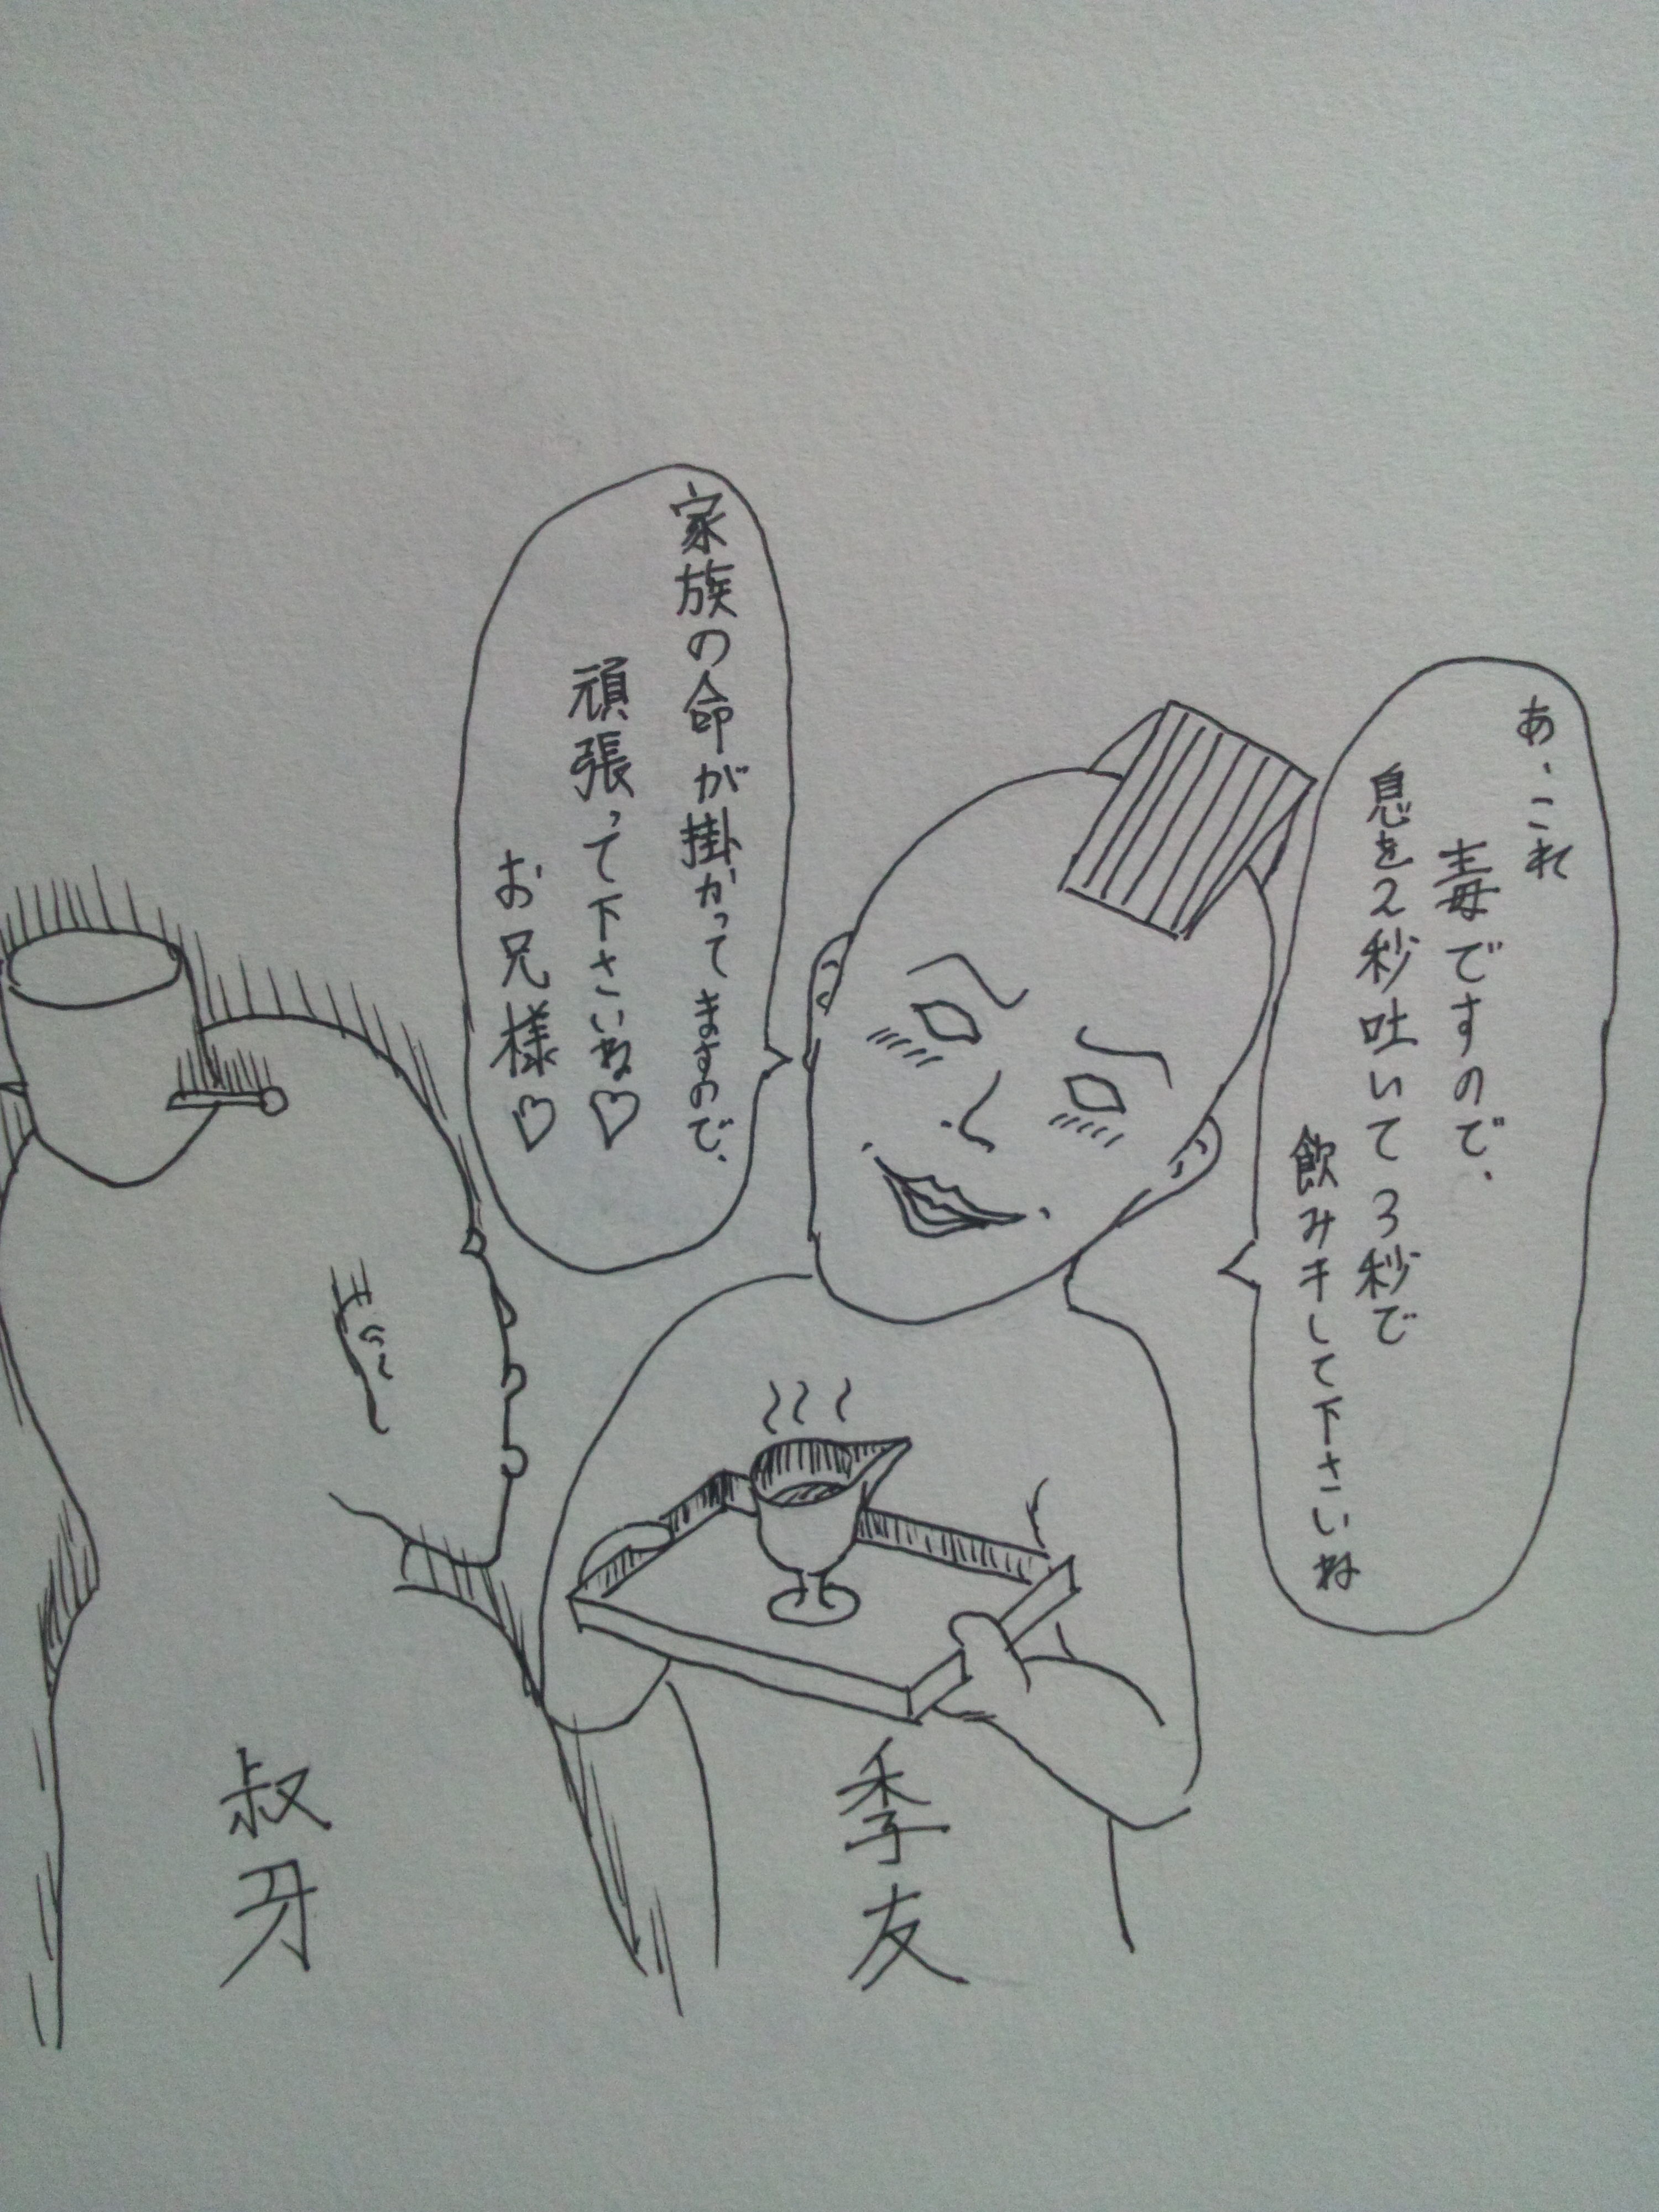 あ、これ
毒ですので、
息を2秒吐いて3秒で
飲み干して下さいね
家族の命が掛かってますので、
頑張って下さいね♡
お兄様♡
季友
叔牙